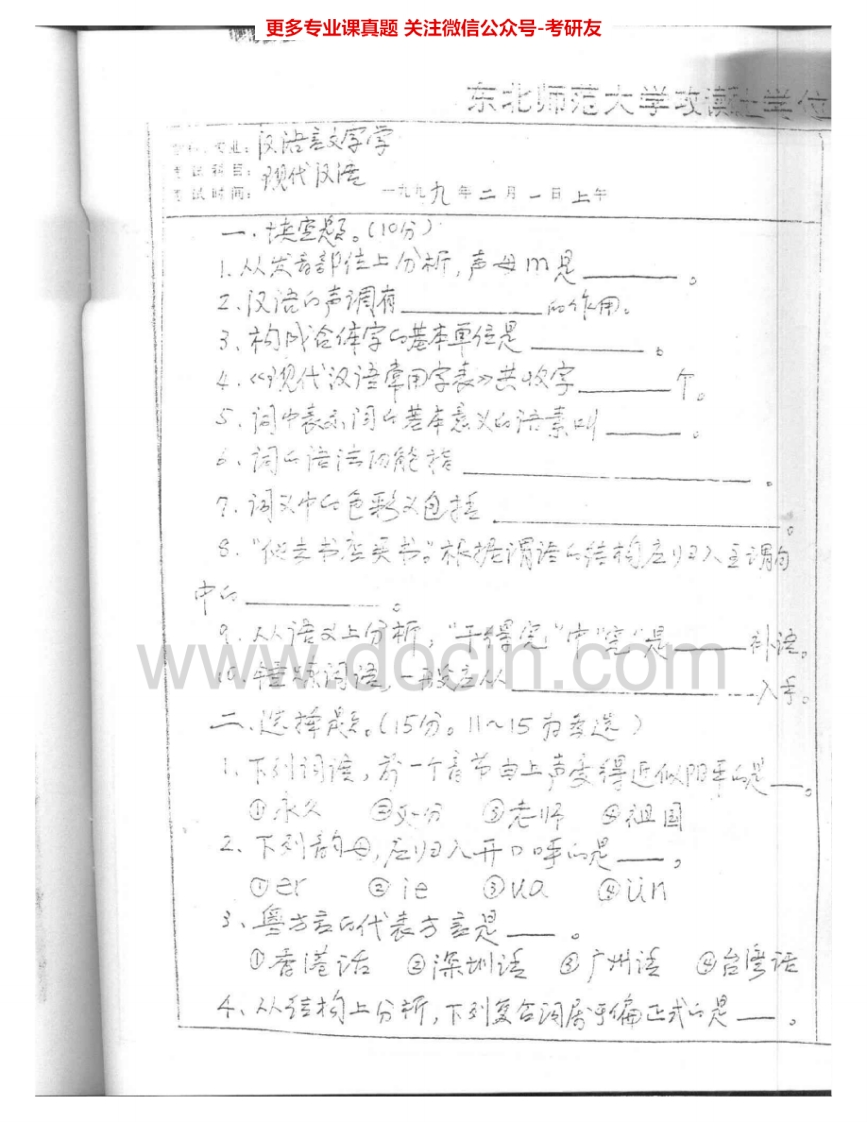 更多专业课真题 关注微信公众号-考研友
东北师范大学攻读
专业: 汉语言文字学
考试科目: 现代汉语
考试时间: 一九九九年二月一日上午
一、填空题。(10分)
1、从发音部位上分析,声母m是______。
2、汉语的声调有______的作用。
3、构成合体字的基本单位是______。
4、《现代汉语常用字表》共收字______个。
5、词中表示词的基本意义的语素叫______。
6、词的语法功能指______。
7、词义中的色彩义包括______。
8、"他去书店买书。"根据谓语的结构应归入主谓句
中的______。
9、从语义上分析,"干得完"中"完"是______补语。
10、锤炼词语,一般应从______入手。
www.docin.com
二、选择题。(15分。11~15为多选)
1、下列词语,前一个音节由上声变得近似阳平的是__。
①永久 ② ③老师 ④祖国
2、下列韵母,应归入开口呼的是__。
①er ②ie ③ua ④ün
3、粤方言的代表方言是__。
①香港话 ②深圳话 ③广州话 ④台湾话
4、从结构上分析,下列复合词属于偏正式的是__。